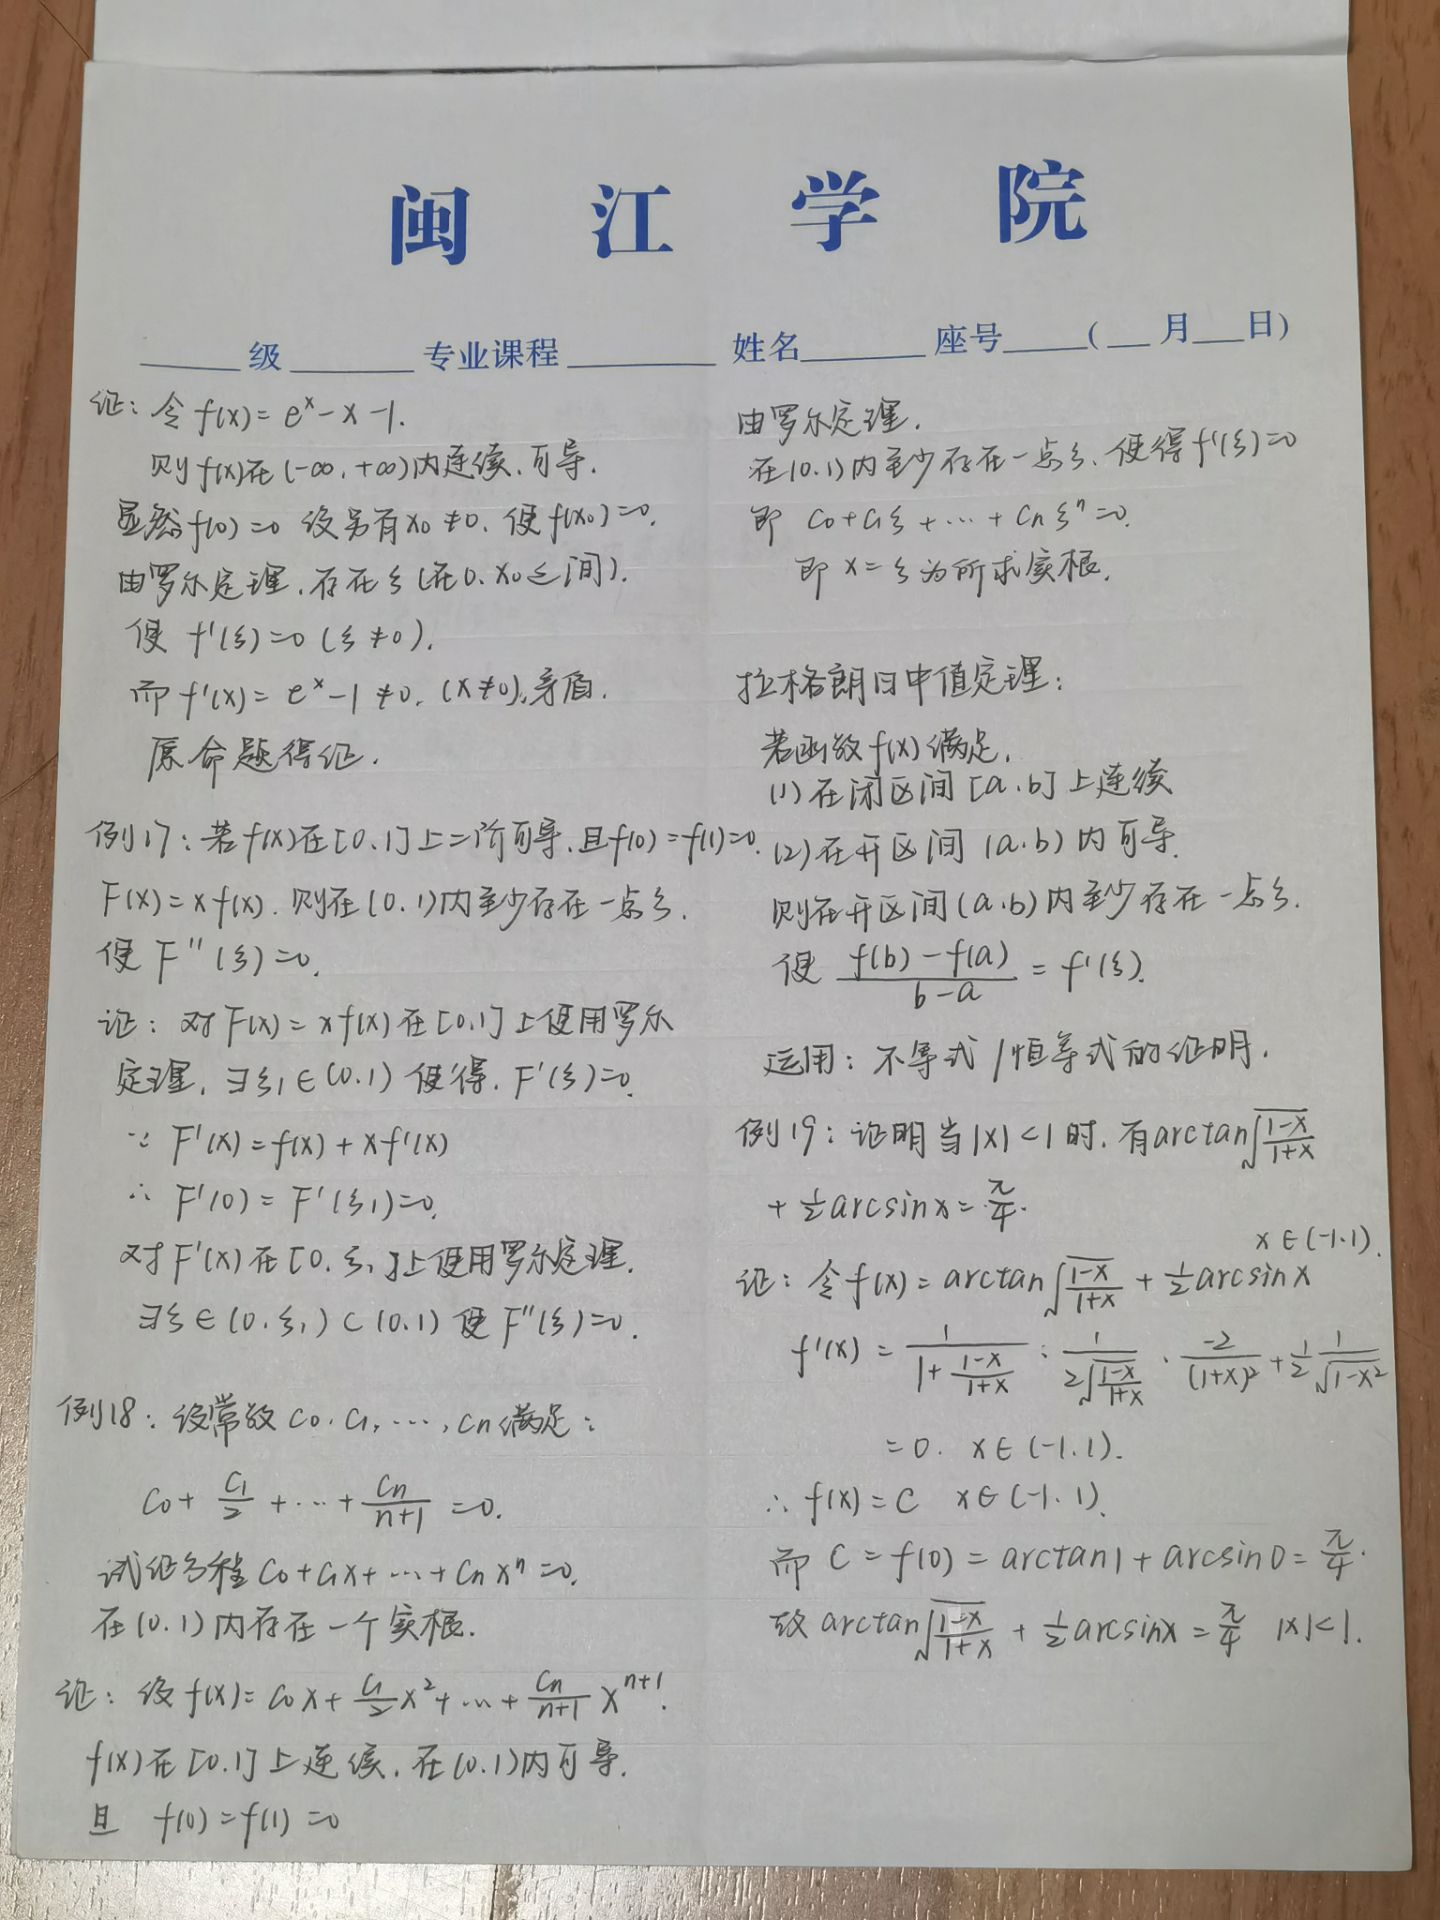 闽江学院
____级 ____ 专业课程 ____ 姓名____ 座号____(__月__日)
证：令 f(x) = e^x - x - 1.
则 f(x) 在 (-∞, +∞) 内连续、可导.
显然 f(0) = 0 设另有 x₀ ≠ 0. 使 f(x₀) = 0.
由罗尔定理，存在 ξ (在0. x₀之间).
使 f'(ξ) = 0 (ξ ≠ 0).
而 f'(x) = e^x - 1 ≠ 0. (x ≠ 0), 矛盾.
原命题得证.
例17：若 f(x) 在 [0.1] 上二阶可导. 且 f(0) = f(1) = 0.
F(x) = x f(x). 则在 (0.1) 内至少存在一点 ξ.
使 F''(ξ) = 0.
证：对 F(x) = x f(x) 在 [0.1] 上使用罗尔
定理. ∃ξ₁ ∈ (0.1) 使得. F'(ξ) = 0.
∵ F'(x) = f(x) + x f'(x)
∴ F'(0) = F'(ξ₁) = 0.
对 F'(x) 在 [0. ξ₁] 上使用罗尔定理.
∃ξ ∈ (0. ξ₁) ⊂ (0.1) 使 F''(ξ) = 0.
例18：设常数 c₀. c₁, ⋯, cₙ 满足：
c₀ + c₁/2 + ⋯ + cₙ/(n+1) = 0.
试证方程 c₀ + c₁x + ⋯ + cₙxⁿ = 0.
在 (0.1) 内存在一个实根.
证：设 f(x) = c₀x + (c₁/2)x² + ⋯ + (cₙ/(n+1)) x^(n+1).
f(x) 在 [0.1] 上连续. 在 (0.1) 内可导.
且 f(0) = f(1) = 0
由罗尔定理.
在 (0.1) 内至少存在一点 ξ、使得 f'(ξ) = 0
即 c₀ + c₁ξ + ⋯ + cₙξⁿ = 0.
即 x = ξ 为所求实根.
拉格朗日中值定理：
若函数 f(x) 满足.
(1) 在闭区间 [a.b] 上连续
(2) 在开区间 (a.b) 内可导.
则在开区间 (a.b) 内至少存在一点 ξ.
使 (f(b) - f(a))/(b - a) = f'(ξ).
运用：不等式/恒等式的证明.
例19：证明当 |x| < 1 时. 有 arctan√((1-x)/(1+x))
+ ½ arcsin x = π/4.
x ∈ (-1.1).
证：令 f(x) = arctan√((1-x)/(1+x)) + ½ arcsin x
f'(x) = 1/(1 + (1-x)/(1+x)) · 1/(2√((1-x)/(1+x))) · -2/(1+x)² + ½ 1/√(1-x²)
= 0. x ∈ (-1.1).
∴ f(x) = C x ∈ (-1.1).
而 C = f(0) = arctan1 + arcsin0 = π/4.
故 arctan√((1-x)/(1+x)) + ½ arcsin x = π/4 |x| < 1.